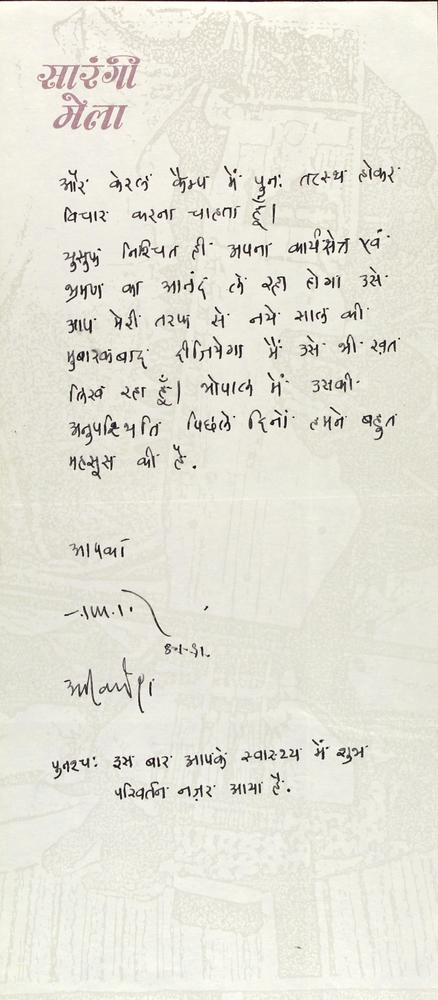 सारंगी
मेला
और केरल कैम्प में पुनः तटस्थ होकर
विचार करना चाहता हूँ।
युसुफ निश्चित ही अपना कार्यक्षेत्र एवं
भ्रमण का आनंद ले रहा होगा उसे
आप मेरी तरफ से नये साल की
मुबारकबाद दीजियेगा मैं उसे भी ख़त
लिख रहा हूँ। भोपाल में उसकी
अनुपस्थिति पिछले दिनों हमने बहुत
महसूस की है.
आपका
पुनश्चः इस बार आपके स्वास्थ्य में शुभ
परिवर्तन नज़र आया है.